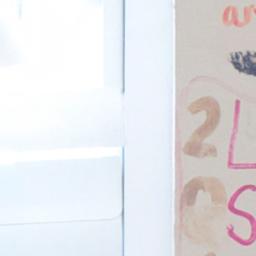 ar
2 L
0 S